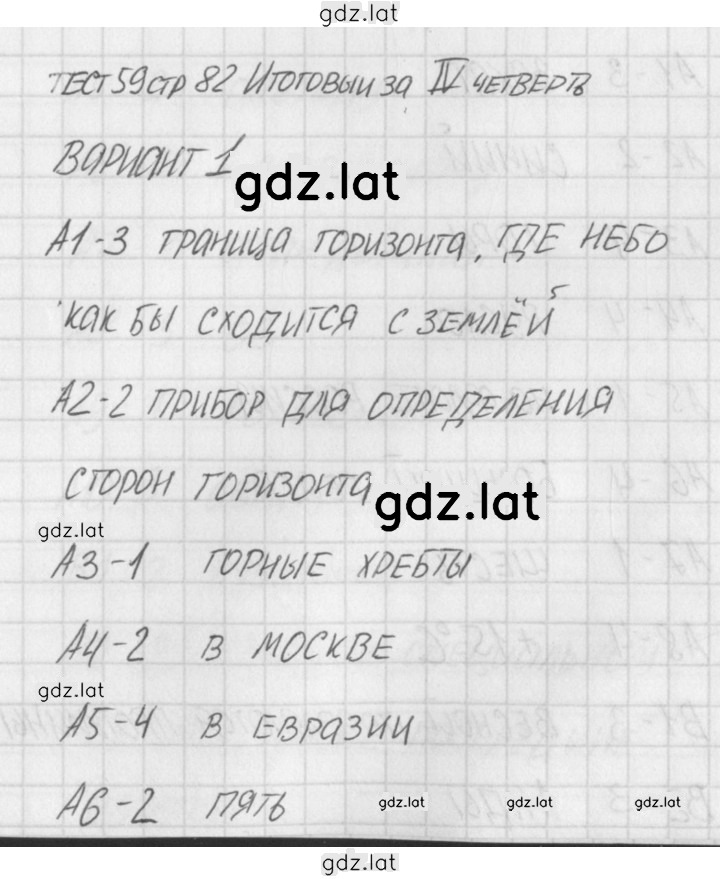 gdz.lat
тест 59 стр 82 Итоговый за IV четверть
Вариант 1
gdz.lat
А1-3 граница горизонта, где небо
как бы сходится с землёй
А2-2 прибор для определения
сторон горизонта
gdz.lat
gdz.lat
А3-1 горные хребты
А4-2 в Москве
gdz.lat
А5-4 в Евразии
А6-2 пять
gdz.lat gdz.lat gdz.lat
gdz.lat